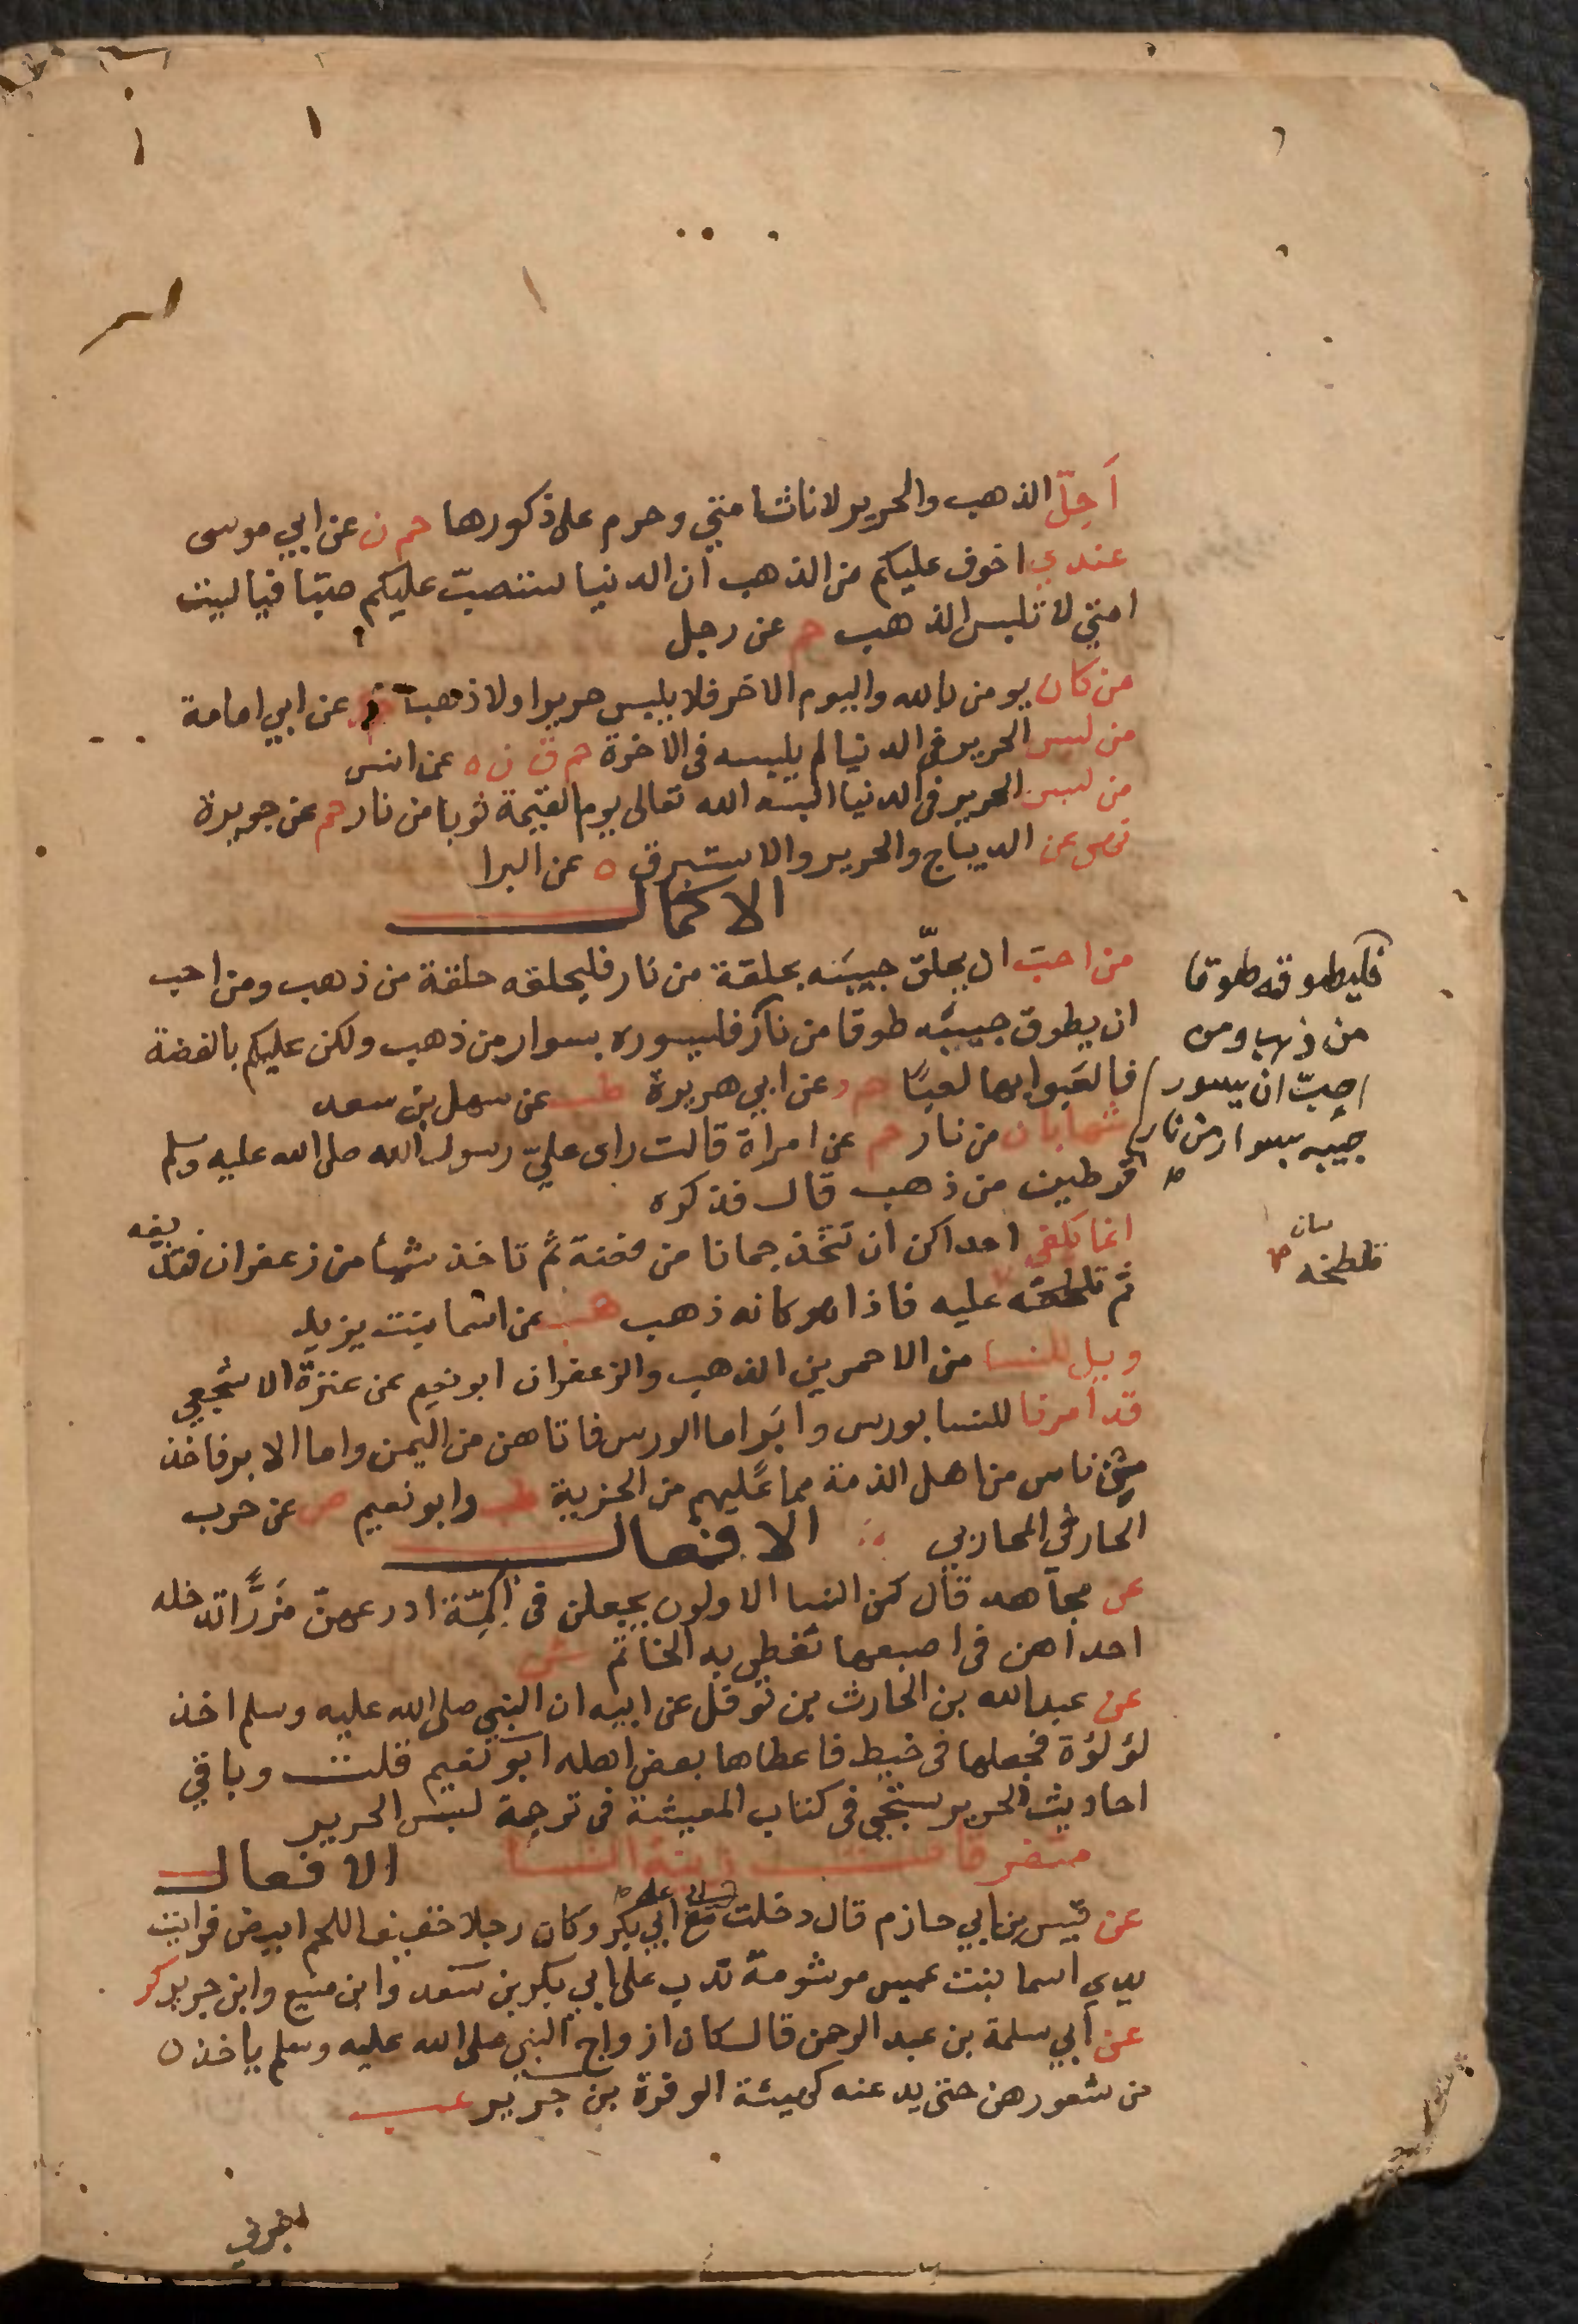 أحِلّ الذهب والحرير لاناث امتي وحرم على ذكورها حم ن عن ابي موسى
عندي اخوف عليكم من الذهب ان الدنيا ستصبّ عليكم صبّا فيا ليت
امتي لا تلبس الذهب حم عن رجل
من كان يومن بالله واليوم الاخر فلا يلبس حريرا ولا ذهبا عن ابي امامة
من لبس الحرير في الدنيا لم يلبسه في الاخرة حم ق ن ه عن انس
من لبس الحرير في الدنيا البسه الله تعالى يوم القيمة ثوبا من نار حم عن جويرة
نهى عن الديباج والحرير والاستبرق ه عن البرا
الاكمال
من احبّ ان يحلّق جبينه بحلقة من نار فليحلقه حلقة من ذهب ومن احب
ان يطوق جبينه طوقا من نار فليسوره بسوار من ذهب ولكن عليكم بالفضة
فالعَبوا بها لعبًا حم د عن ابي هريرة طب عن سهل بن سعد
شهابان من نار حم عن امراة قالت راى عليّ رسول الله صلى الله عليه وسلم
قرطين من ذهب قال فذكره
انما تكفي احداكن ان تتخذ جمانا من فضة ثم تاخذ شيأ من زعفران فتذيفه
ثم تلطخه عليه فاذا هو كانه ذهب عن اسما بنت يزيد
ويل للنسا من الاحمرين الذهب والزعفران ابو نعيم عن عنزة الاشجعي
قد أمرنا للنسا بورس وابَر اما الورس فاتاهن من اليمن واما الابر فاخذ
من ناس من اهل الذمة مما عليهم من الجزية طب وابو نعيم ص عن حرب
الحارثي المحاربي الافعال
عن مجاهد قال كن النسا الاولون يجعلن في اكمّة ادرعهنّ مزرًّا تدخله
احداهن في اصبعها تغطي به الخاتم ش
عن عبد الله بن الحارث بن نوفل عن ابيه ان النبي صلى الله عليه وسلم اخذ
لؤلؤة فجعلها في خيط فاعطاها بعض اهله ابو نعيم قلت وباقي
احاديث الحرير ستجي في كتاب المعيشة في ترجمة لبس الحرير
متفرقات زينة النسا الافعال
عن قيس بن ابي حازم قال دخلت مع ابي على ابي بكر وكان رجلا خفيف اللحم ابيض فرايت
يدي اسما بنت عميس موشومة تذب على ابي بكر بن سعد وابن منيع وابن جرير كر
عن أبي سلمة بن عبد الرحمن قال كان ازواج النبي صلى الله عليه وسلم ياخذن
من شعورهن حتى يدعنه كهيئة الوفرة بن جرير
فليطوقه طوقا
من ذهب ومن
احبّ ان يسور
جبينه بسوار من نار
فلطخه
اخرني